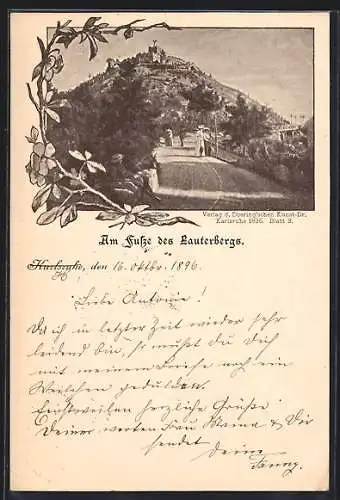 Verlag d. Doering'schen Kunst-Dr.
Karlsruhe 1896. Blatt 3.
Am Fuße des Lauterbergs.
Karlsruhe, den 16. Oktbr. 1896.
Liebe Antonie!
Da ich in letzter Zeit wieder sehr
leidend bin, so musst du Dich
mit meinem Briefe noch ein
Weilchen gedulden.
Einstweilen herzliche Grüße
Deiner werten Frau Mama & Dir
sendet Deine
Fanny.